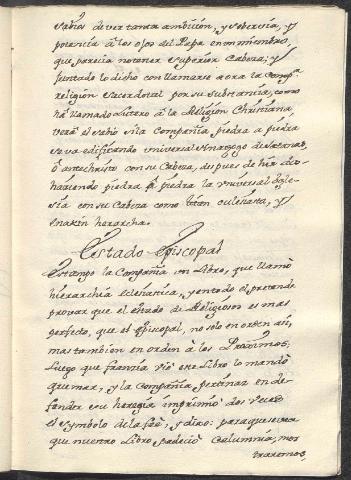 sabios de ver tanta ambicion, y sobervia, y
potencia à los ojos del Papa en un miembro,
que parecia no tener superior Cabeza; y
juntado lo dicho con llamarse aora la Compª
religion Sacerdotal por su substancia, como
hà llamado Lutero à la Religion Christiana
verà el sabio si la Compañia piedra a piedra
se va edificando universal Sinagoga de Satanas,
ò antechristo con su Cabeza, despues de haver des-
haciendo piedra à piedra la universal Ygle-
sia en su Cabeza como tan eclesiastica, y
herarcha.
Estado Episcopal
Estampo la Compañia un Libro, que llamò
hierarchia Eclesiastica, y en todo el pretende
provar que el estado de Religiosos es mas
perfecto, que el Episcopal, no solo en orden asi,
mas tambien en orden à los Proximos;
Luego que Francia viò este Libro lo mandò
quemar, y la Compañia pertinaz en de-
fender su heregia imprimiò dos veces
el symbolo de la feè, y dixo: para que se vea
que nuestro Libro padeciò Calumnia, nos
traxemos,